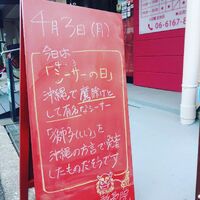 4月3日(月)
今日は
「シーサーの日」
沖縄で魔除けと
して有名なシーサー
「獅子(しし)」を
沖縄の方言で発音
したものだそうです
06-6167-8